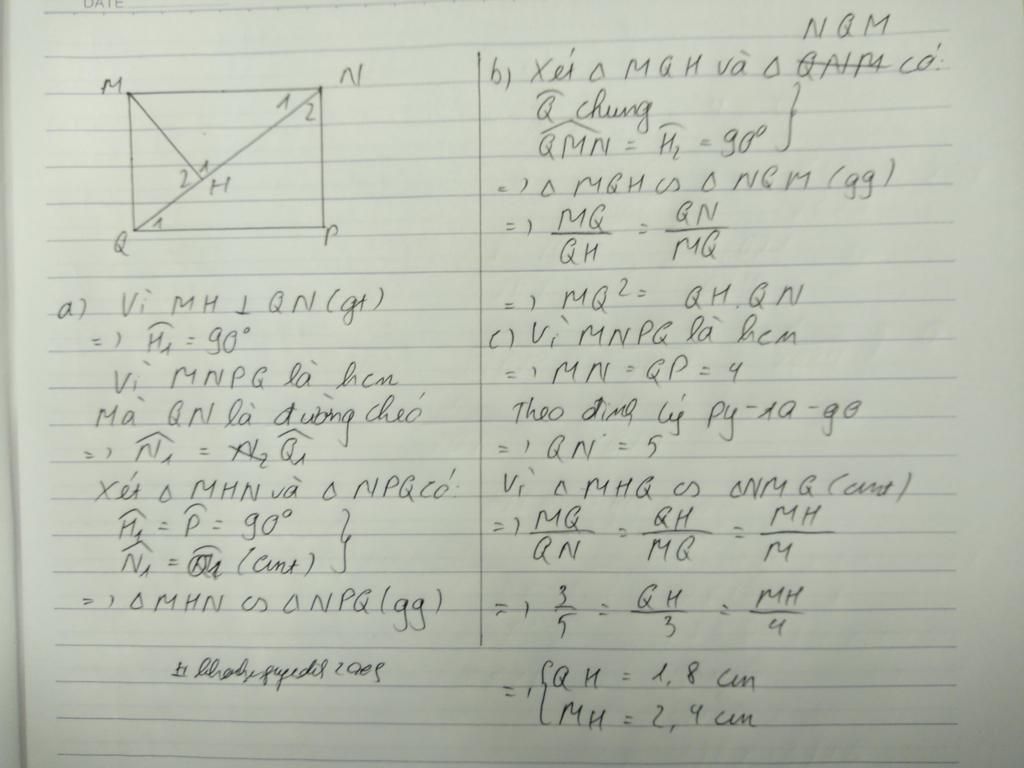 DATE
M
N
1
2
1
2
H
1
Q
P
a) Vì MH ⊥ QN (gt)
=> Ĥ₁ = 90°
Vì MNPQ là hcn
Mà QN là đường chéo
=> N̂₁ = Q̂₁
Xét Δ MHN và Δ NPQ có:
Ĥ₁ = P̂ = 90°
N̂₁ = Q̂₁ (cmt)
=> Δ MHN ∽ Δ NPQ (gg)
NQM
b) Xét Δ MQH và Δ QNM có:
Q̂ chung
QMN = Ĥ₂ = 90°
=> Δ MQH ∽ Δ NQM (gg)
=> MQ/QH = QN/MQ
=> MQ² = QH.QN
c) Vì MNPQ là hcn
=> MN = QP = 4
Theo định lý Py-ta-go
=> QN = 5
Vì Δ MHQ ∽ ΔNMQ (cmt)
=> MQ/QN = QH/MQ = MH/M
=> 3/5 = QH/3 = MH/4
=> { QH = 1,8 cm
MH = 2,4 cm